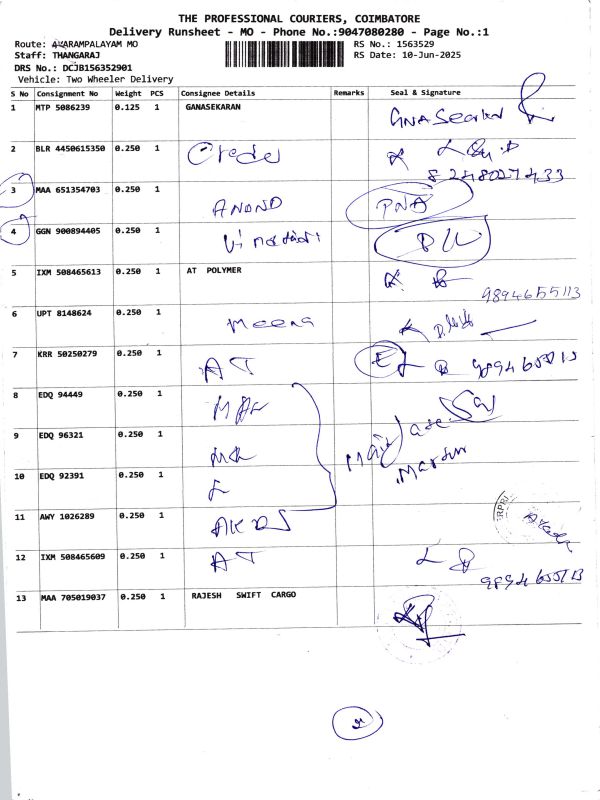 THE PROFESSIONAL COURIERS, COIMBATORE
Delivery Runsheet - MO - Phone No.:9047080280 - Page No.:1
Route: AVARAMPALAYAM MO
Staff: THANGARAJ
DRS No.: DCJB156352901
Vehicle: Two Wheeler Delivery
RS No.: 1563529
RS Date: 10-Jun-2025
S No Consignment No Weight PCS Consignee Details Remarks Seal & Signature
1 MTP 5086239 0.125 1 GANASEKARAN
2 BLR 4450615350 0.250 1
8248027433
3 MAA 651354703 0.250 1 ANAND PNA
4 GGN 900894405 0.250 1
5 IXM 508465613 0.250 1 AT POLYMER 9894655113
6 UPT 8148624 0.250 1 Meena
7 KRR 50250279 0.250 1 AT 9894655113
8 EDQ 94449 0.250 1
9 EDQ 96321 0.250 1
10 EDQ 92391 0.250 1
11 AWY 1026289 0.250 1
12 IXM 508465609 0.250 1 AT 9894655113
13 MAA 705019037 0.250 1 RAJESH SWIFT CARGO